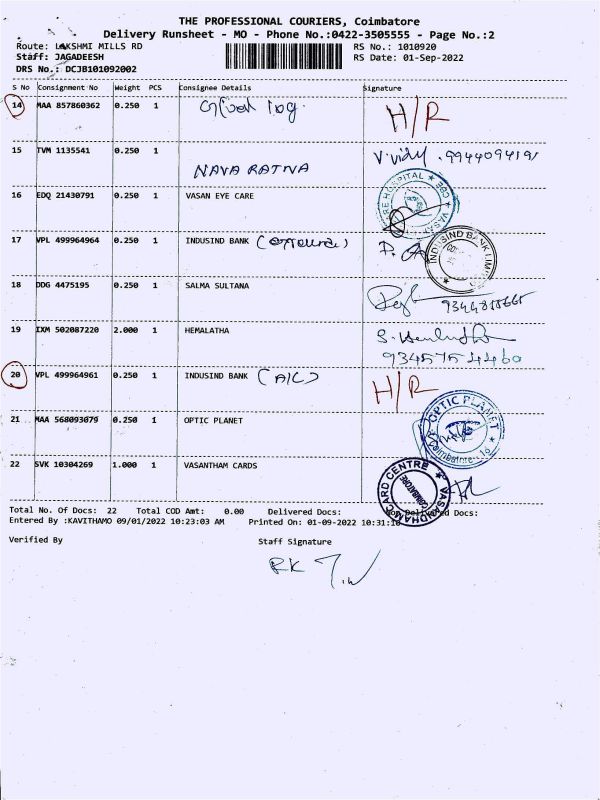 THE PROFESSIONAL COURIERS, Coimbatore
Delivery Runsheet - MO - Phone No.:0422-3505555 - Page No.:2
Route: LAKSHMI MILLS RD
RS No.: 1010920
Staff: JAGADEESH
RS Date: 01-Sep-2022
DRS No.: DCJB101092002
S No Consignment No Weight PCS Consignee Details Signature
14 MAA 857860362 0.250 1 H/R
15 TVM 1135541 0.250 1 NAVA RATNA V.vidy
16 EDQ 21430791 0.250 1 VASAN EYE CARE
HOSPITAL ★ CBE ★ VASAN
17 VPL 499964964 0.250 1 INDUSIND BANK
INDUSIND BANK LIMITED
18 DDG 4475195 0.250 1 SALMA SULTANA
19 IXM 502087220 2.000 1 HEMALATHA
9345754460
20 VPL 499964961 0.250 1 INDUSIND BANK (A/C) H/R
21 MAA 568093079 0.250 1 OPTIC PLANET
OPTIC PLANET ★ Coimbatore
22 SVK 10304269 1.000 1 VASANTHAM CARDS
VASANDHAM CARD CENTRE COIMBATORE
Total No. Of Docs: 22 Total COD Amt: 0.00 Delivered Docs: Non Delivered Docs:
Entered By :KAVITHAMO 09/01/2022 10:23:03 AM Printed On: 01-09-2022 10:31:16
Verified By Staff Signature
RK